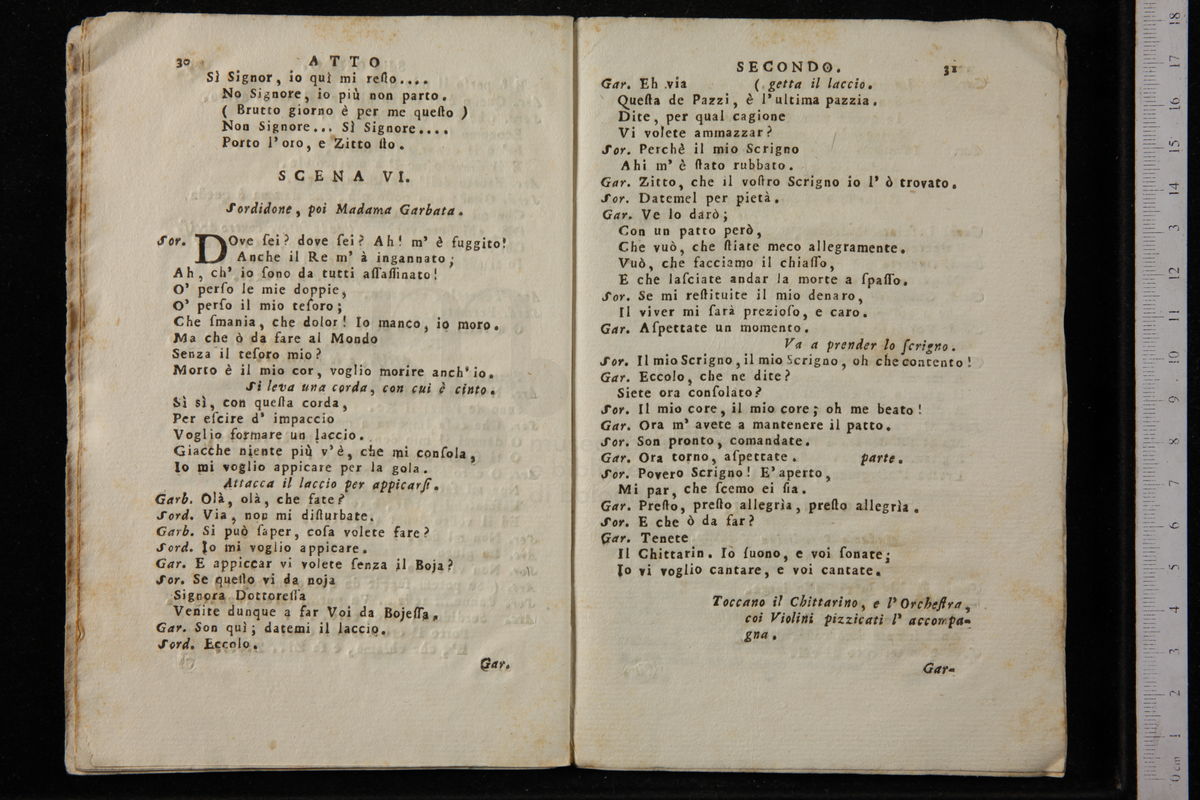 30 ATTO
Sì Signor, io quì mi reſto....
No Signore, io più non parto.
( Brutto giorno è per me queſto )
Non Signore... Sì Signore....
Porto l'oro, e Zitto ſto.
SCENA VI.
Sordidone, poi Madama Garbata.
Sor. DOve ſei? dove ſei? Ah! m' è fuggito!
Anche il Re m' à ingannato;
Ah, ch' io ſono da tutti aſſaſſinato!
O' perſo le mie doppie,
O' perſo il mio teſoro;
Che ſmania, che dolor! Io manco, io moro.
Ma che ò da fare al Mondo
Senza il teſoro mio?
Morto è il mio cor, voglio morire anch' io.
Si leva una corda, con cui è cinto.
Sì sì, con queſta corda,
Per eſcire d' impaccio
Voglio formare un laccio.
Giacche niente più v' è, che mi conſola,
Io mi voglio appicare per la gola.
Attacca il laccio per appicarſi.
Garb. Olà, olà, che fate?
Sord. Via, non mi diſturbate.
Garb. Si può ſaper, coſa volete fare?
Sord. Io mi voglio appicare.
Gar. E appiccar vi volete ſenza il Boja?
Sor. Se queſto vi da noja
Signora Dottoreſſa
Venite dunque a far Voi da Bojeſſa.
Gar. Son quì; datemi il laccio.
Sord. Eccolo.
Gar.
SECONDO. 31
Gar. Eh via ( getta il laccio.
Queſta de Pazzi, è l'ultima pazzia.
Dite, per qual cagione
Vi volete ammazzar?
Sor. Perchè il mio Scrigno
Ahi m' è ſtato rubbato.
Gar. Zitto, che il voſtro Scrigno io l' ò trovato.
Sor. Datemel per pietà.
Gar. Ve lo darò;
Con un patto però,
Che vuò, che ſtiate meco allegramente.
Vuò, che facciamo il chiaſſo,
E che laſciate andar la morte a ſpaſſo.
Sor. Se mi reſtituite il mio denaro,
Il viver mi ſarà prezioſo, e caro.
Gar. Aſpettate un momento.
Va a prender lo ſcrigno.
Sor. Il mio Scrigno, il mio Scrigno, oh che contento!
Gar. Eccolo, che ne dite?
Siete ora conſolato?
Sor. Il mio core, il mio core; oh me beato!
Gar. Ora m' avete a mantenere il patto.
Sor. Son pronto, comandate.
Gar. Ora torno, aſpettate. parte.
Sor. Povero Scrigno! E' aperto,
Mi par, che ſcemo ei ſia.
Gar. Preſto, preſto allegrìa, preſto allegrìa.
Sor. E che ò da far?
Gar. Tenete
Il Chittarin. Io ſuono, e voi ſonate;
Io vi voglio cantare, e voi cantate.
Toccano il Chittarino, e l' Orcheſtra,
coi Violini pizzicati l' accompa-
gna.
Gar-
0 cm 1 2 3 4 5 6 7 8 9 10 11 12 13 14 15 16 17 18